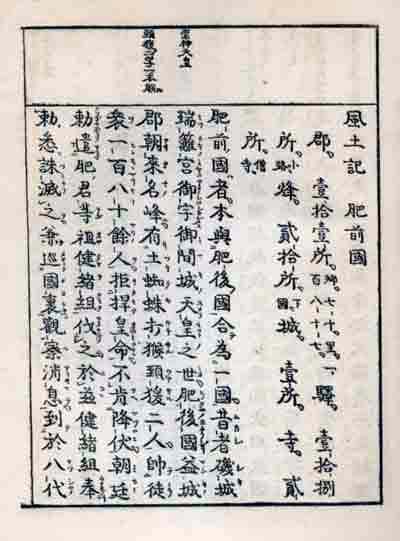 風土記　肥前國
郡。壹拾壹所。鄉七十。里一百八十七。驛。壹拾捌
所。小路。烽。貳拾所。下國。城。壹所。寺。貳
所。僧寺。
崇神天皇
肥前國者本與肥後國合為一國昔者磯城
瑞籬宮御宇御間城天皇之世肥後國益城
郡朝來名峰有土蜘蛛打猴頸二人帥徒
衆一百八十餘人拒捍皇命不肯降伏朝廷
勅遣肥君等祖健緒組伐之於茲健緒組奉
勅悉誅滅之兼巡國裏觀察消息到於八代